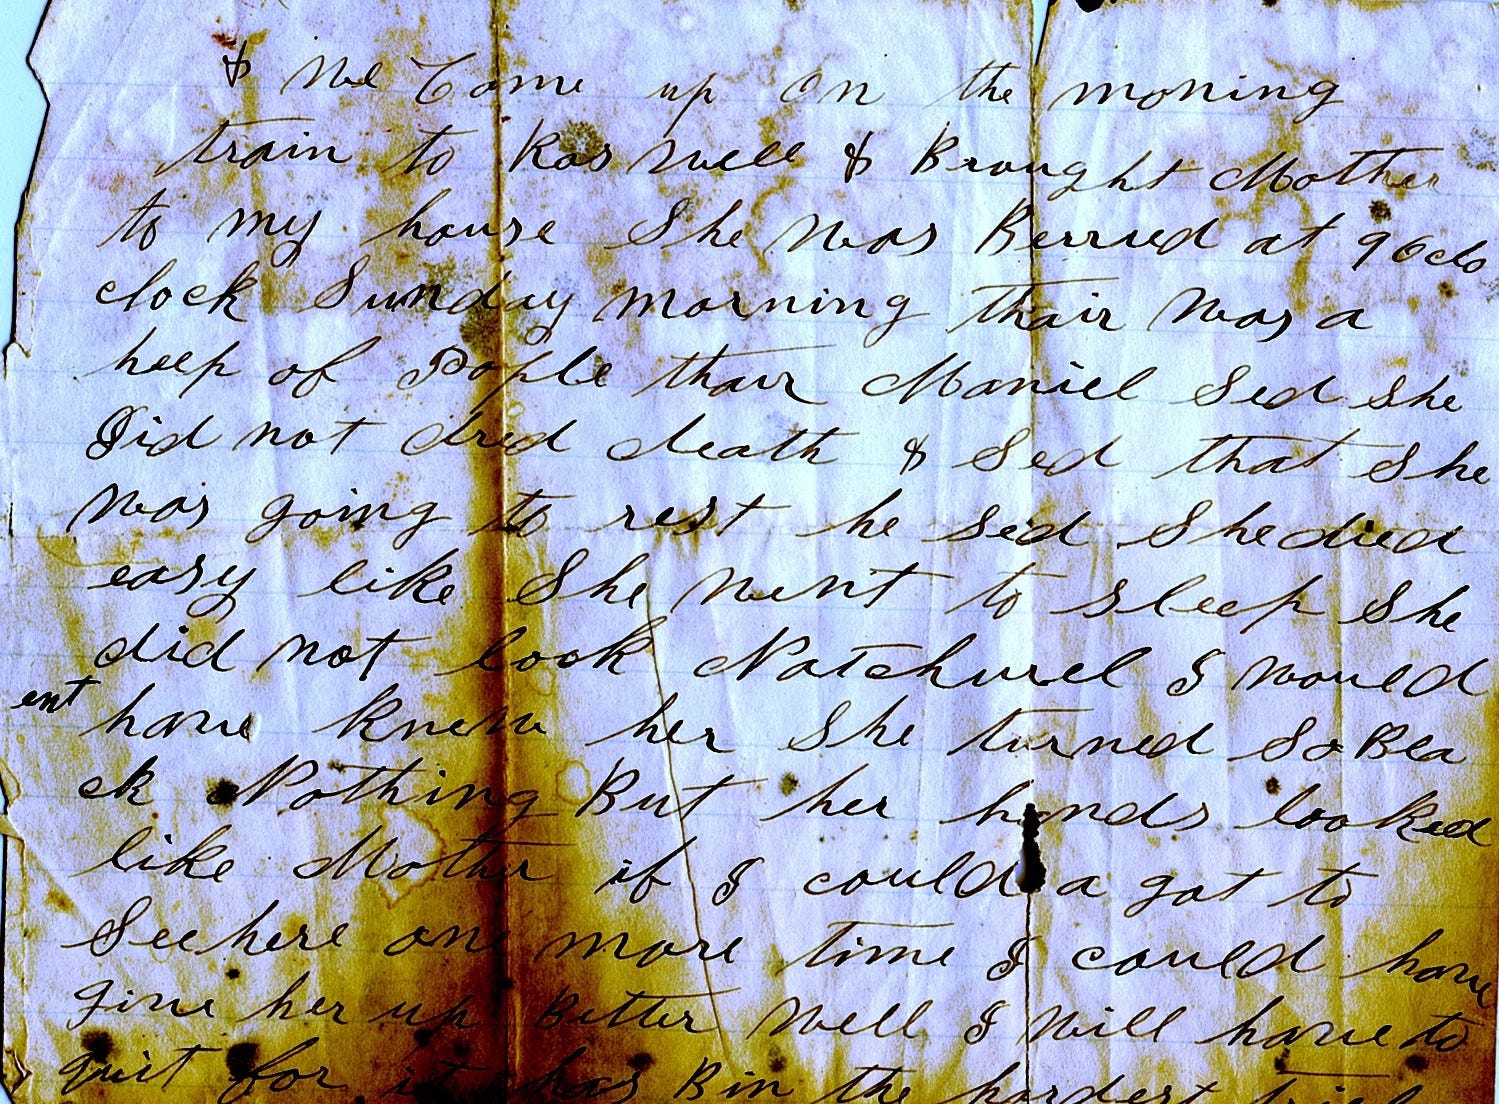 & We Come up on the moning
train to Ros Well & Brought Mother
to my house She Was Berried at 9 Oclo
clock Sunday morning thair Was a
heep of Pople thair Maniel Sed She
Did not dred death & Sed that She
Was going to rest he Sed She died
easy like She Went to sleep She
did not look Natchurel I Would
ent have knew her She turned So Bla
ck Nothing But her hands looked
like Mother if I could a got to
See here one more time I could have
give her up Better Well I Will have to
quit for it has Bin the hardest